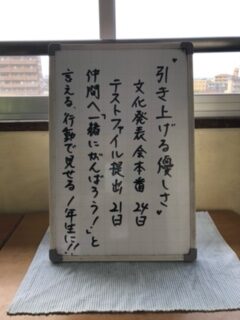 ♥引き上げる優しさ♥
文化発表会本番 24日
テストファイル提出 21日
仲間へ「一緒にがんばろう!」と
言える、行動で見せる1年生に!!